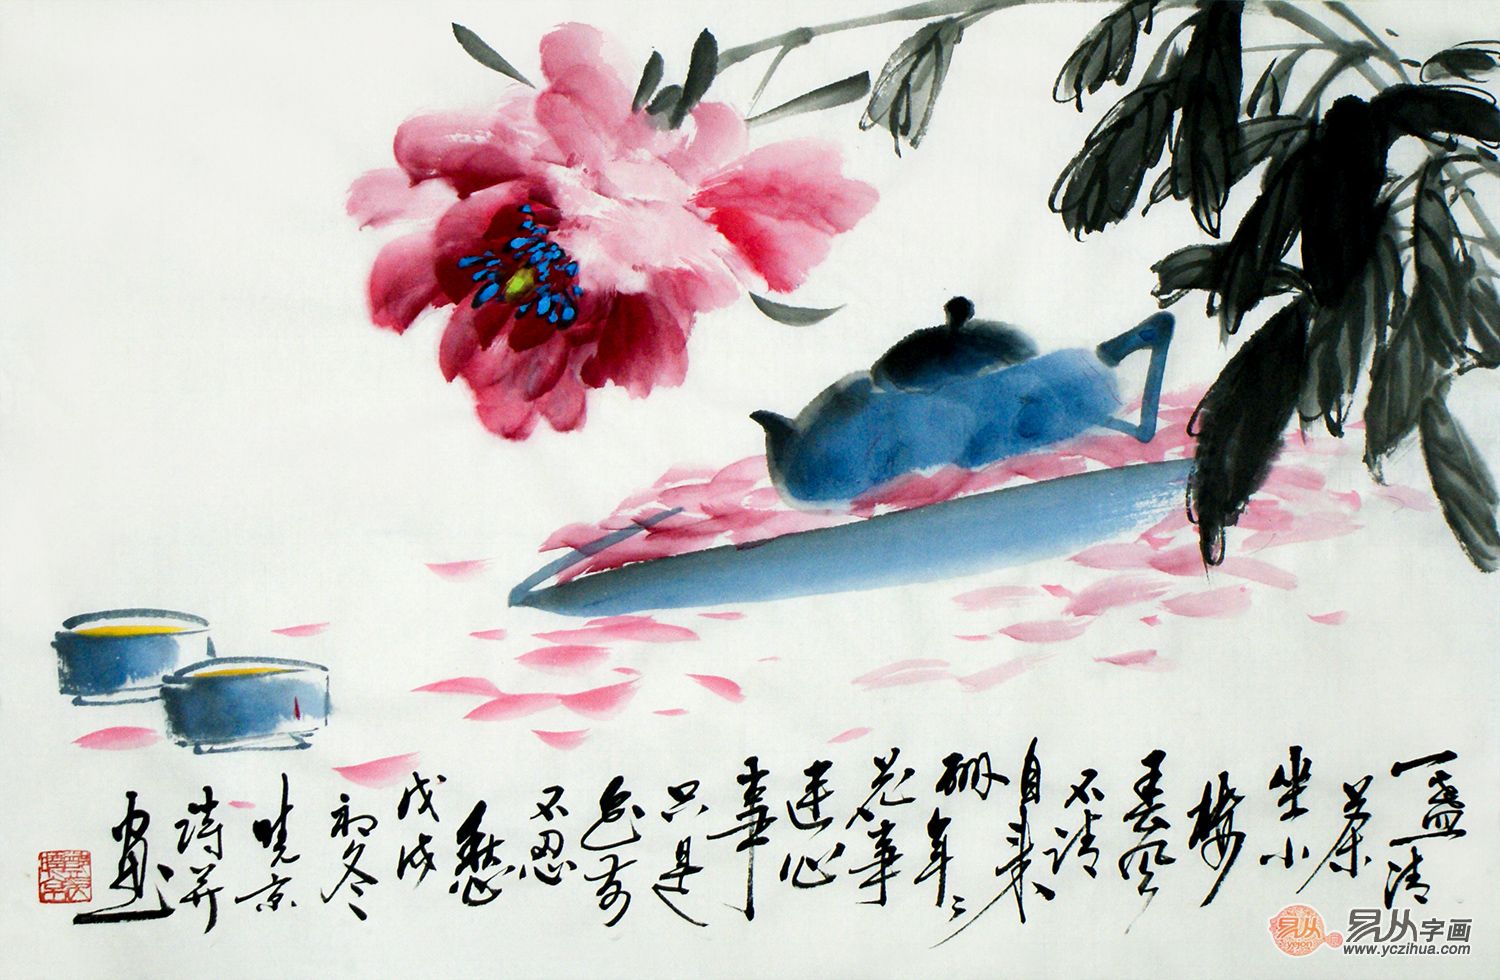 一盏清
茶
坐小
楼
春风
不请
自来
酬年年
花事
连心
事
只是
不忍
愁
戊戌
初冬
晓京
诗并
画
易从
易从字画
www.yczihua.com